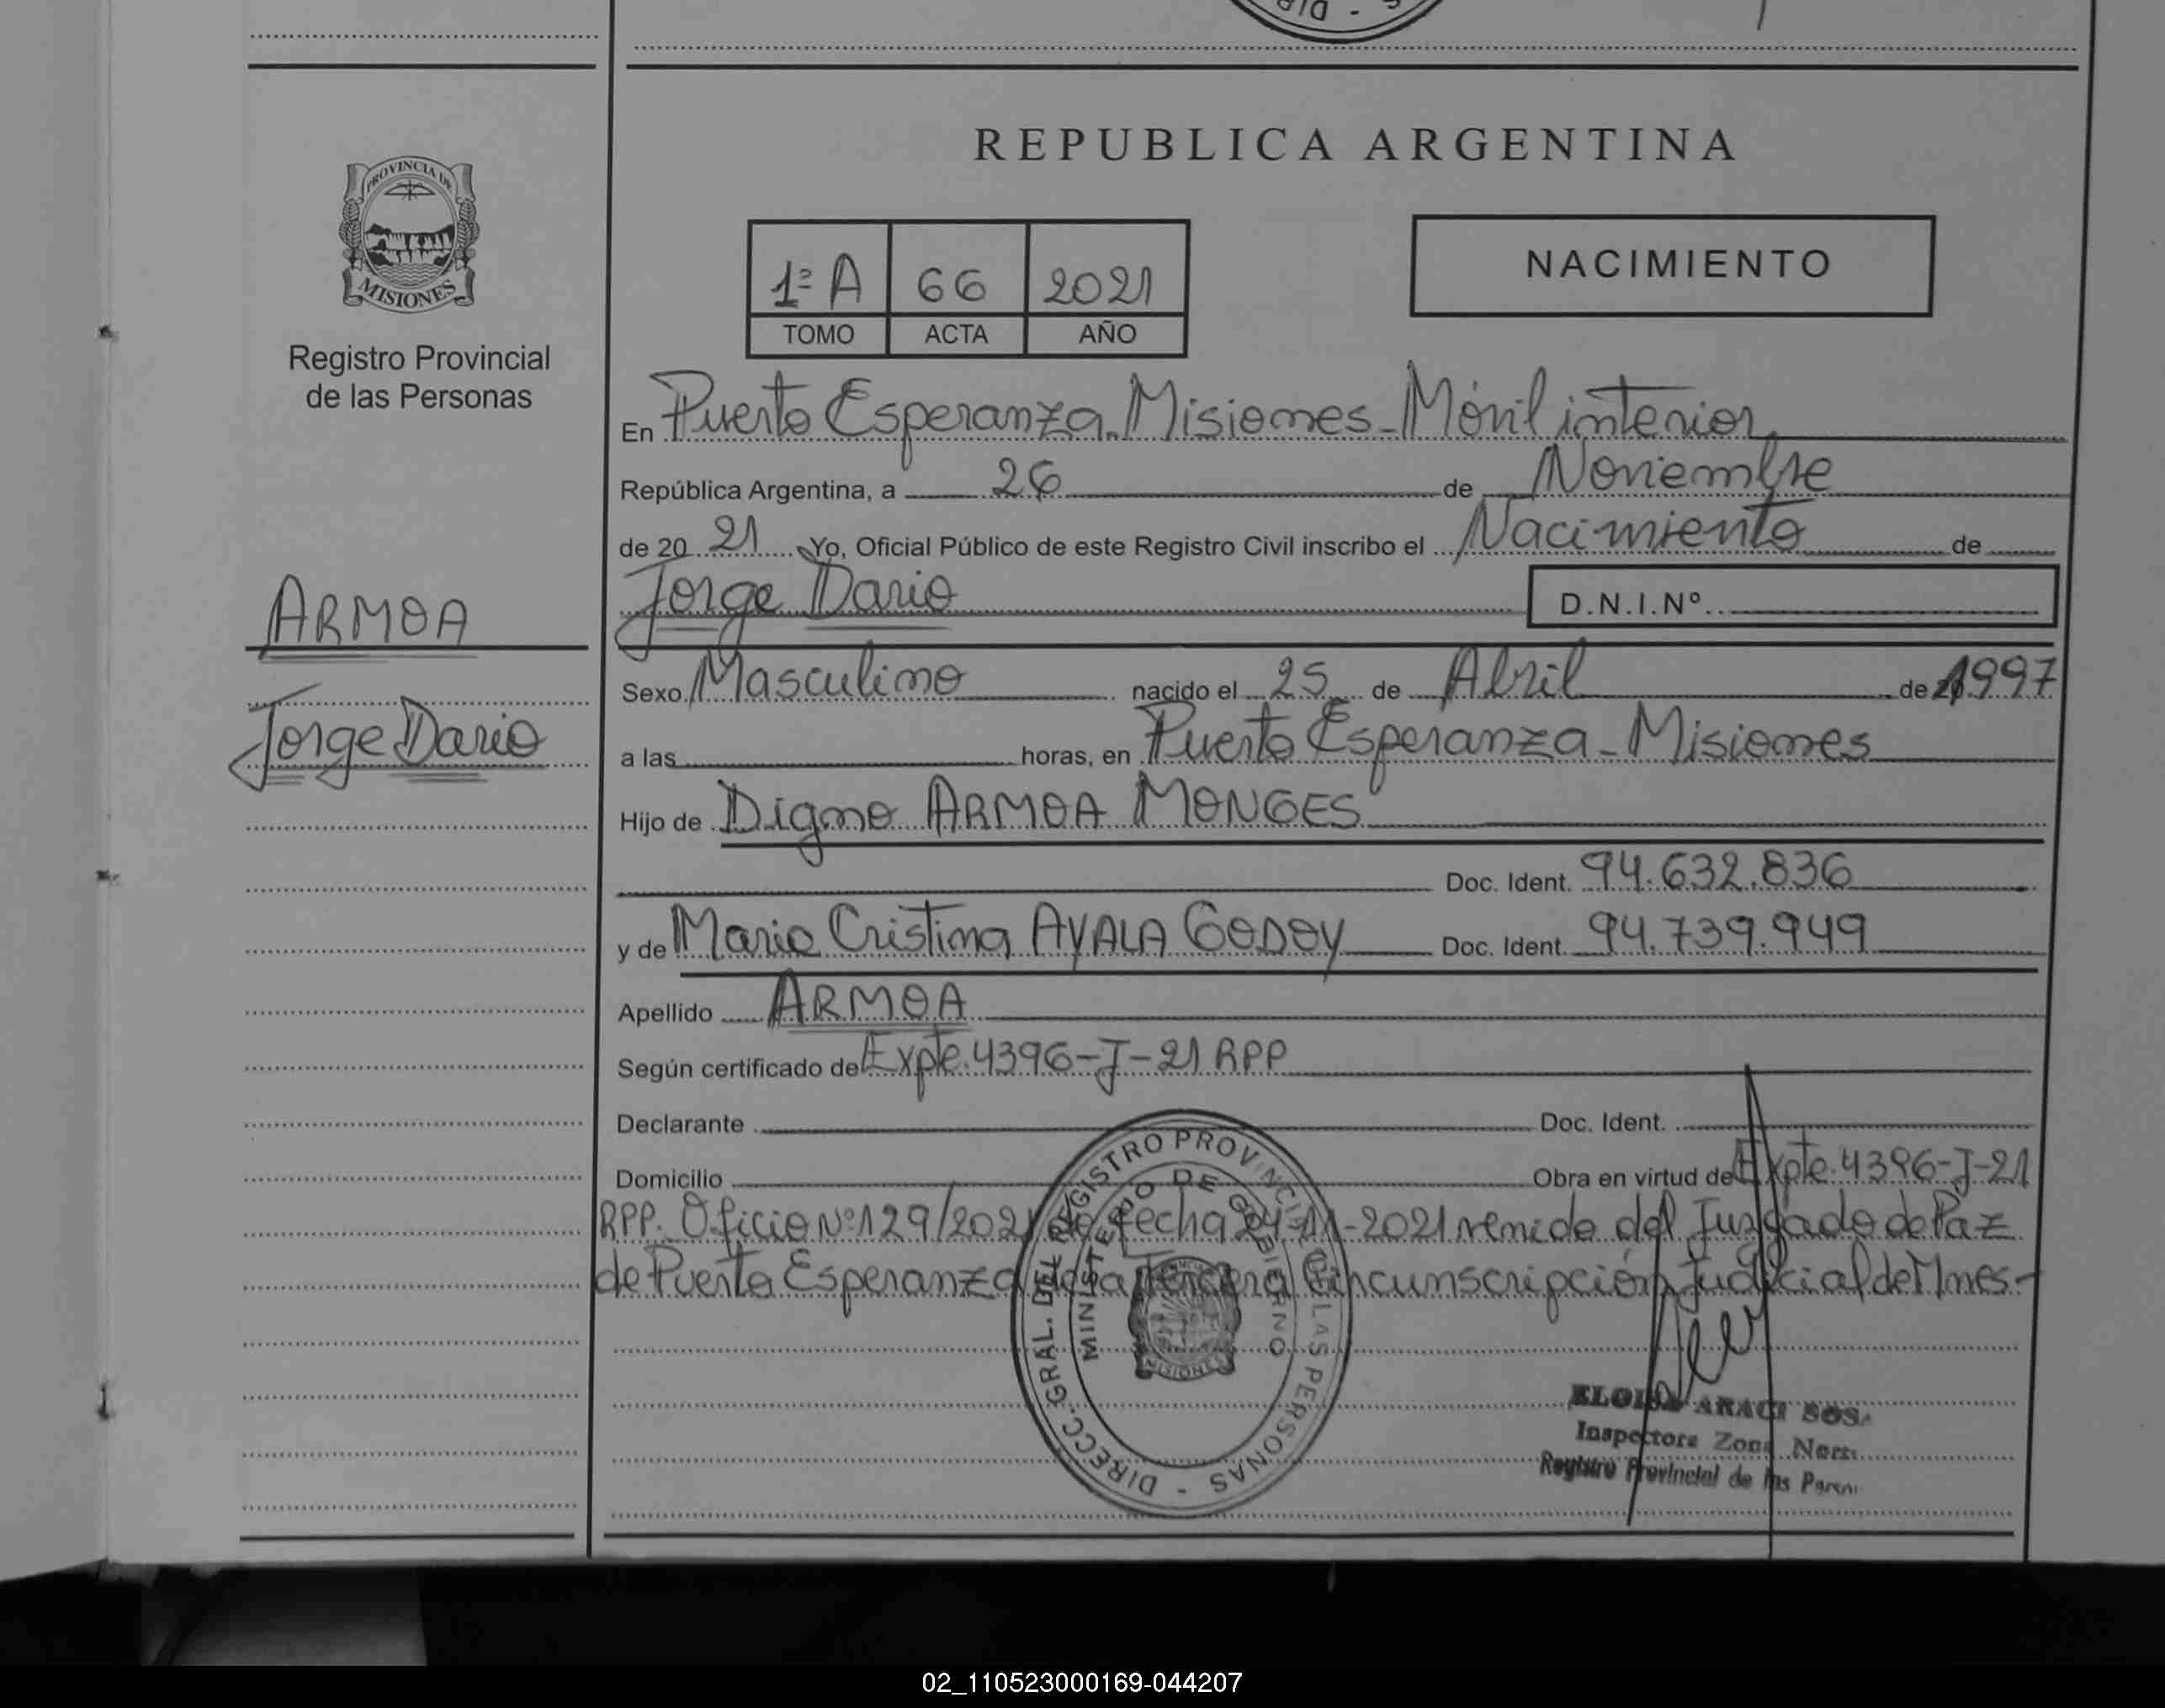 DIR
PROVINCIA DE
MISIONES
Registro Provincial
de las Personas
ARMOA
Jorge Dario
REPUBLICA ARGENTINA
1ª A 66 2021
TOMO ACTA AÑO
NACIMIENTO
En Puerto Esperanza. Misiones - Móvil interior
República Argentina, a 26 de Noviembre
de 20 21 Yo, Oficial Público de este Registro Civil inscribo el Nacimiento de
Jorge Dario D.N.I.Nº
Sexo Masculino nacido el 25 de Abril de 1997
a las horas, en Puerto Esperanza - Misiones
Hijo de Digno ARMOA MONGES
Doc. Ident. 94.632.836
y de Maria Cristina AYALA GODOY Doc. Ident. 94.739.949
Apellido ARMOA
Según certificado de Expte. 4396-J-21 RPP
Declarante Doc. Ident.
Domicilio Obra en virtud de Expte. 4396-J-21
RPP. Oficio Nº 129/2021 de fecha 24-11-2021 remido del Juzgado de Paz
de Puerto Esperanza de la Tercera Circunscripción Judicial de Mnes-
DIRECC. GRAL. DEL REGISTRO PROVINCIAL DE LAS PERSONAS -
MINISTERIO DE GOBIERNO
MISIONES
ELOISA ARACI SOSA
Inspectora Zona Norte
Registro Provincial de las Person
02_110523000169-044207